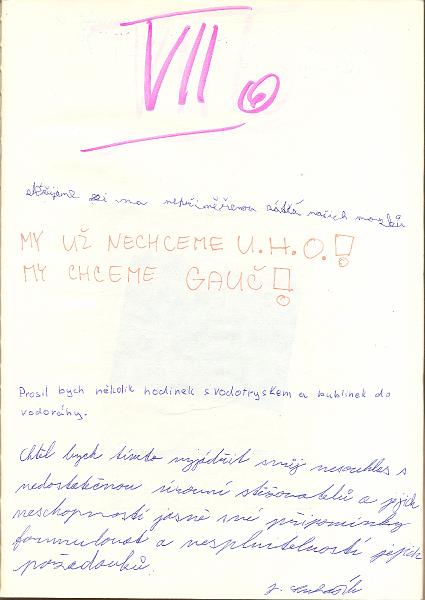 VII.
stěžujeme si na nepřiměřenou zátěž našich mozků
MY UŽ NECHCEME U.H.O.!
MY CHCEME GAUČ!
Prosil bych několik hodinek s vodotryskem a bublinek do
vodováhy.
Chtěl bych tímto vyjádřit svůj nesouhlas s
nedostatečnou úrovní stěžovatelů a jejich
neschopností jasně své připomínky
formulovat a nesplnitelností jejich
požadavků.